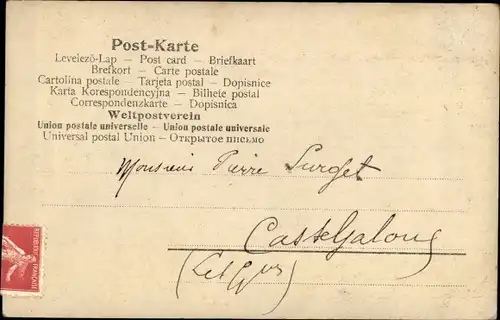 Post-Karte
Levelező-Lap — Post card — Briefkaart
Brefkort — Carte postale
Cartolina postale — Tarjeta postal — Dopisnice
Karta Korespondencyjna — Bilhete postal
Correspondenzkarte — Dopisnica
Weltpostverein
Union postale universelle — Union postale universale
Universal postal Union — Открытое письмо
Monsieur Pierre Surget
Casteljaloux
RÉPUBLIQUE FRANÇAISE